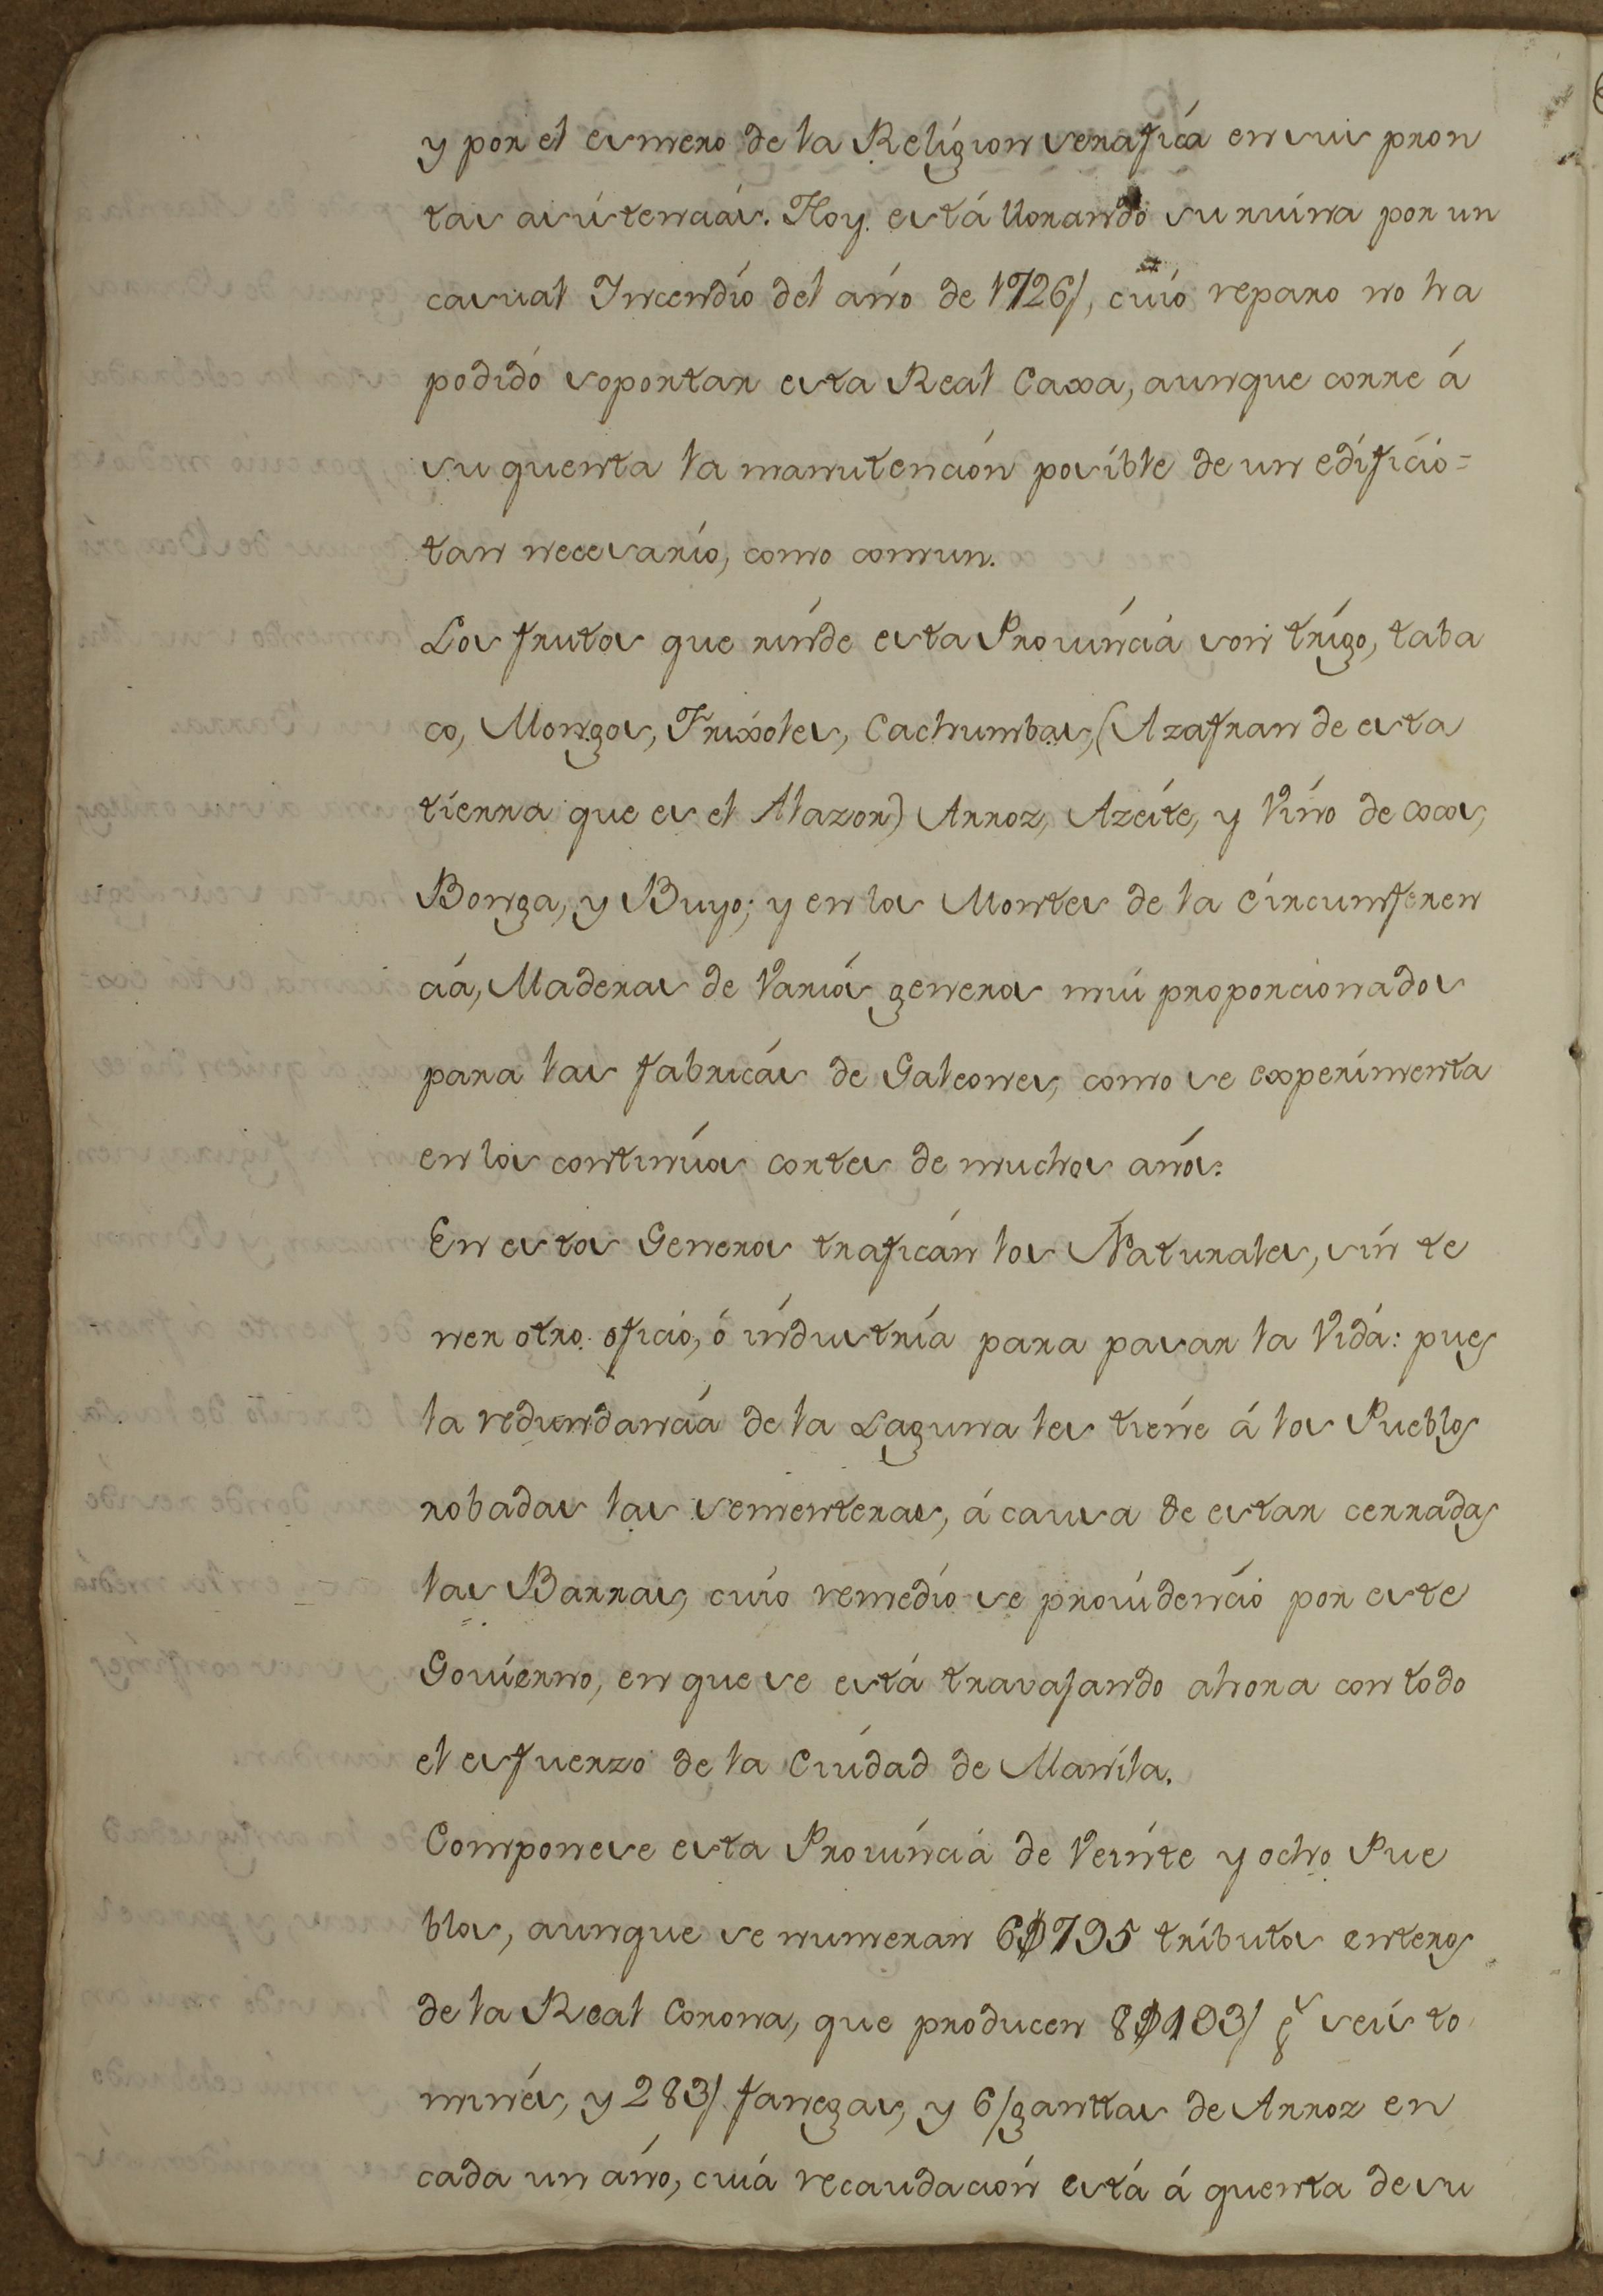 y por el esmero de la Religion serafica en sus pron
tas asistencias. Hoy está llorando su ruina por un
casual Incendio del año de 1726/, cuio reparo no ha
podido soportar esta Real Caxa, aunque corre á
su quenta la manutencion posible de un edificio=
tan necesario, como comun.
Los frutos que rinde esta Provincia son trigo, taba
co, Mongos, Frixoles, Cachumbas, (Azafran de esta
tierra que es el Alazor) Arroz, Azeite, y Vino de cocos,
Bonga, y Buyo; y en los Montes de la circumferen
cia, Maderas de Varios generos mui proporcionados
para las fabricas de Galeones, como se experimenta
en los continuos cortes de muchos años.
En estos Generos trafican los Naturales, sin te
ner otro oficio, ó industria para pasar la Vida: pues
la redundancia de la Laguna les tiene á los Pueblos
robadas las sementeras, á causa de estar cerradas
las Barras, cuio remedio se providenció por este
Govierno, en que se está travajando ahora con todo
el esfuerzo de la Ciudad de Manila.
Componese esta Provincia de Veinte y ocho Pue
blos, aunque se numeran 6$795 tributos enteros
de la Real Corona, que producen 8$193/ ps seis to
mines, y 283/ fanegas, y 6/ganttas de Arroz en
cada un año, cuia recaudacion está á quenta de su